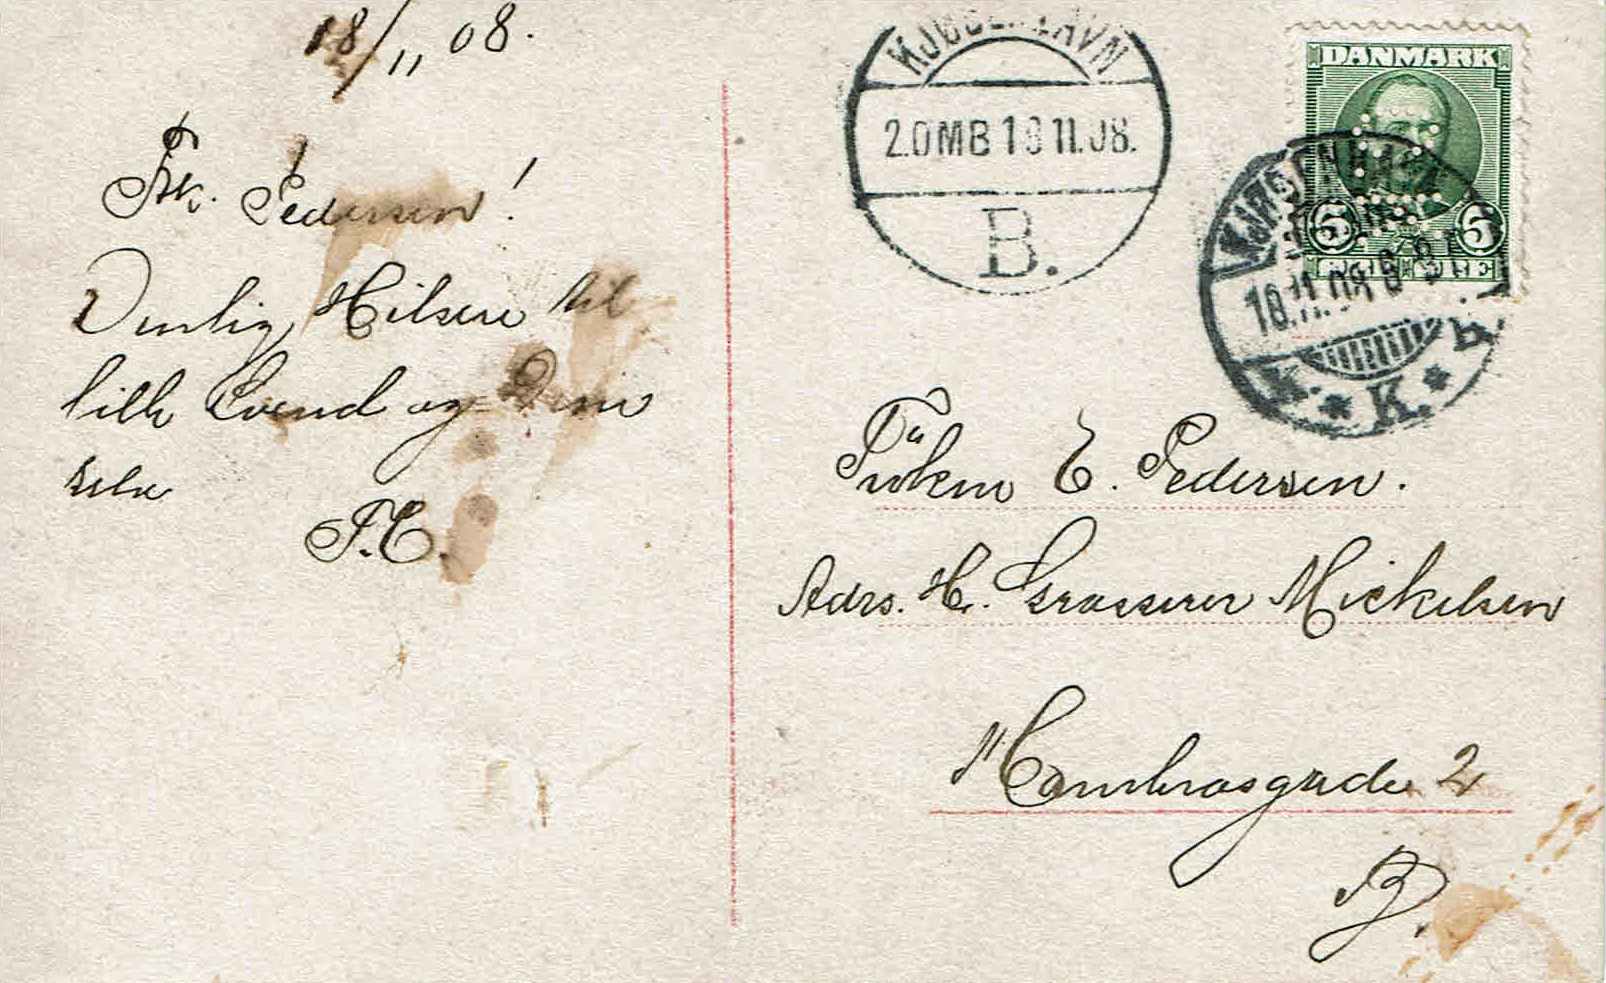 18/11 08.
Frk. Pedersen!
Venlig Hilsen til
lille Svend og Dem
selv
F.C.
KJØBENHAVN
2.OMB 19 11.08.
B.
DANMARK
5 5
KJØBENHAVN
18.11.08
K. * K. * K.
Frøken E. Pedersen.
Adrs. Hr. Grosserer Mickelsen
Hambrosgade 2
B.